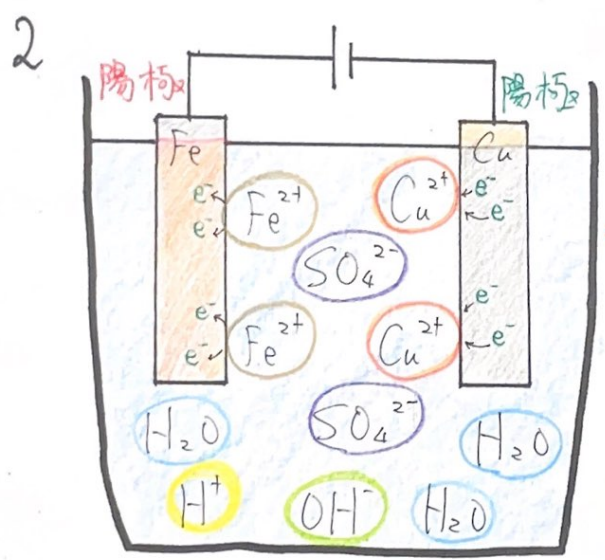 2
陽極
陽極
Fe
Cu
e⁻
Fe²⁺
Cu²⁺
e⁻
e⁻
e⁻
SO₄²⁻
e⁻
Fe²⁺
Cu²⁺
e⁻
e⁻
e⁻
H₂O
SO₄²⁻
H₂O
H⁺
OH⁻
H₂O